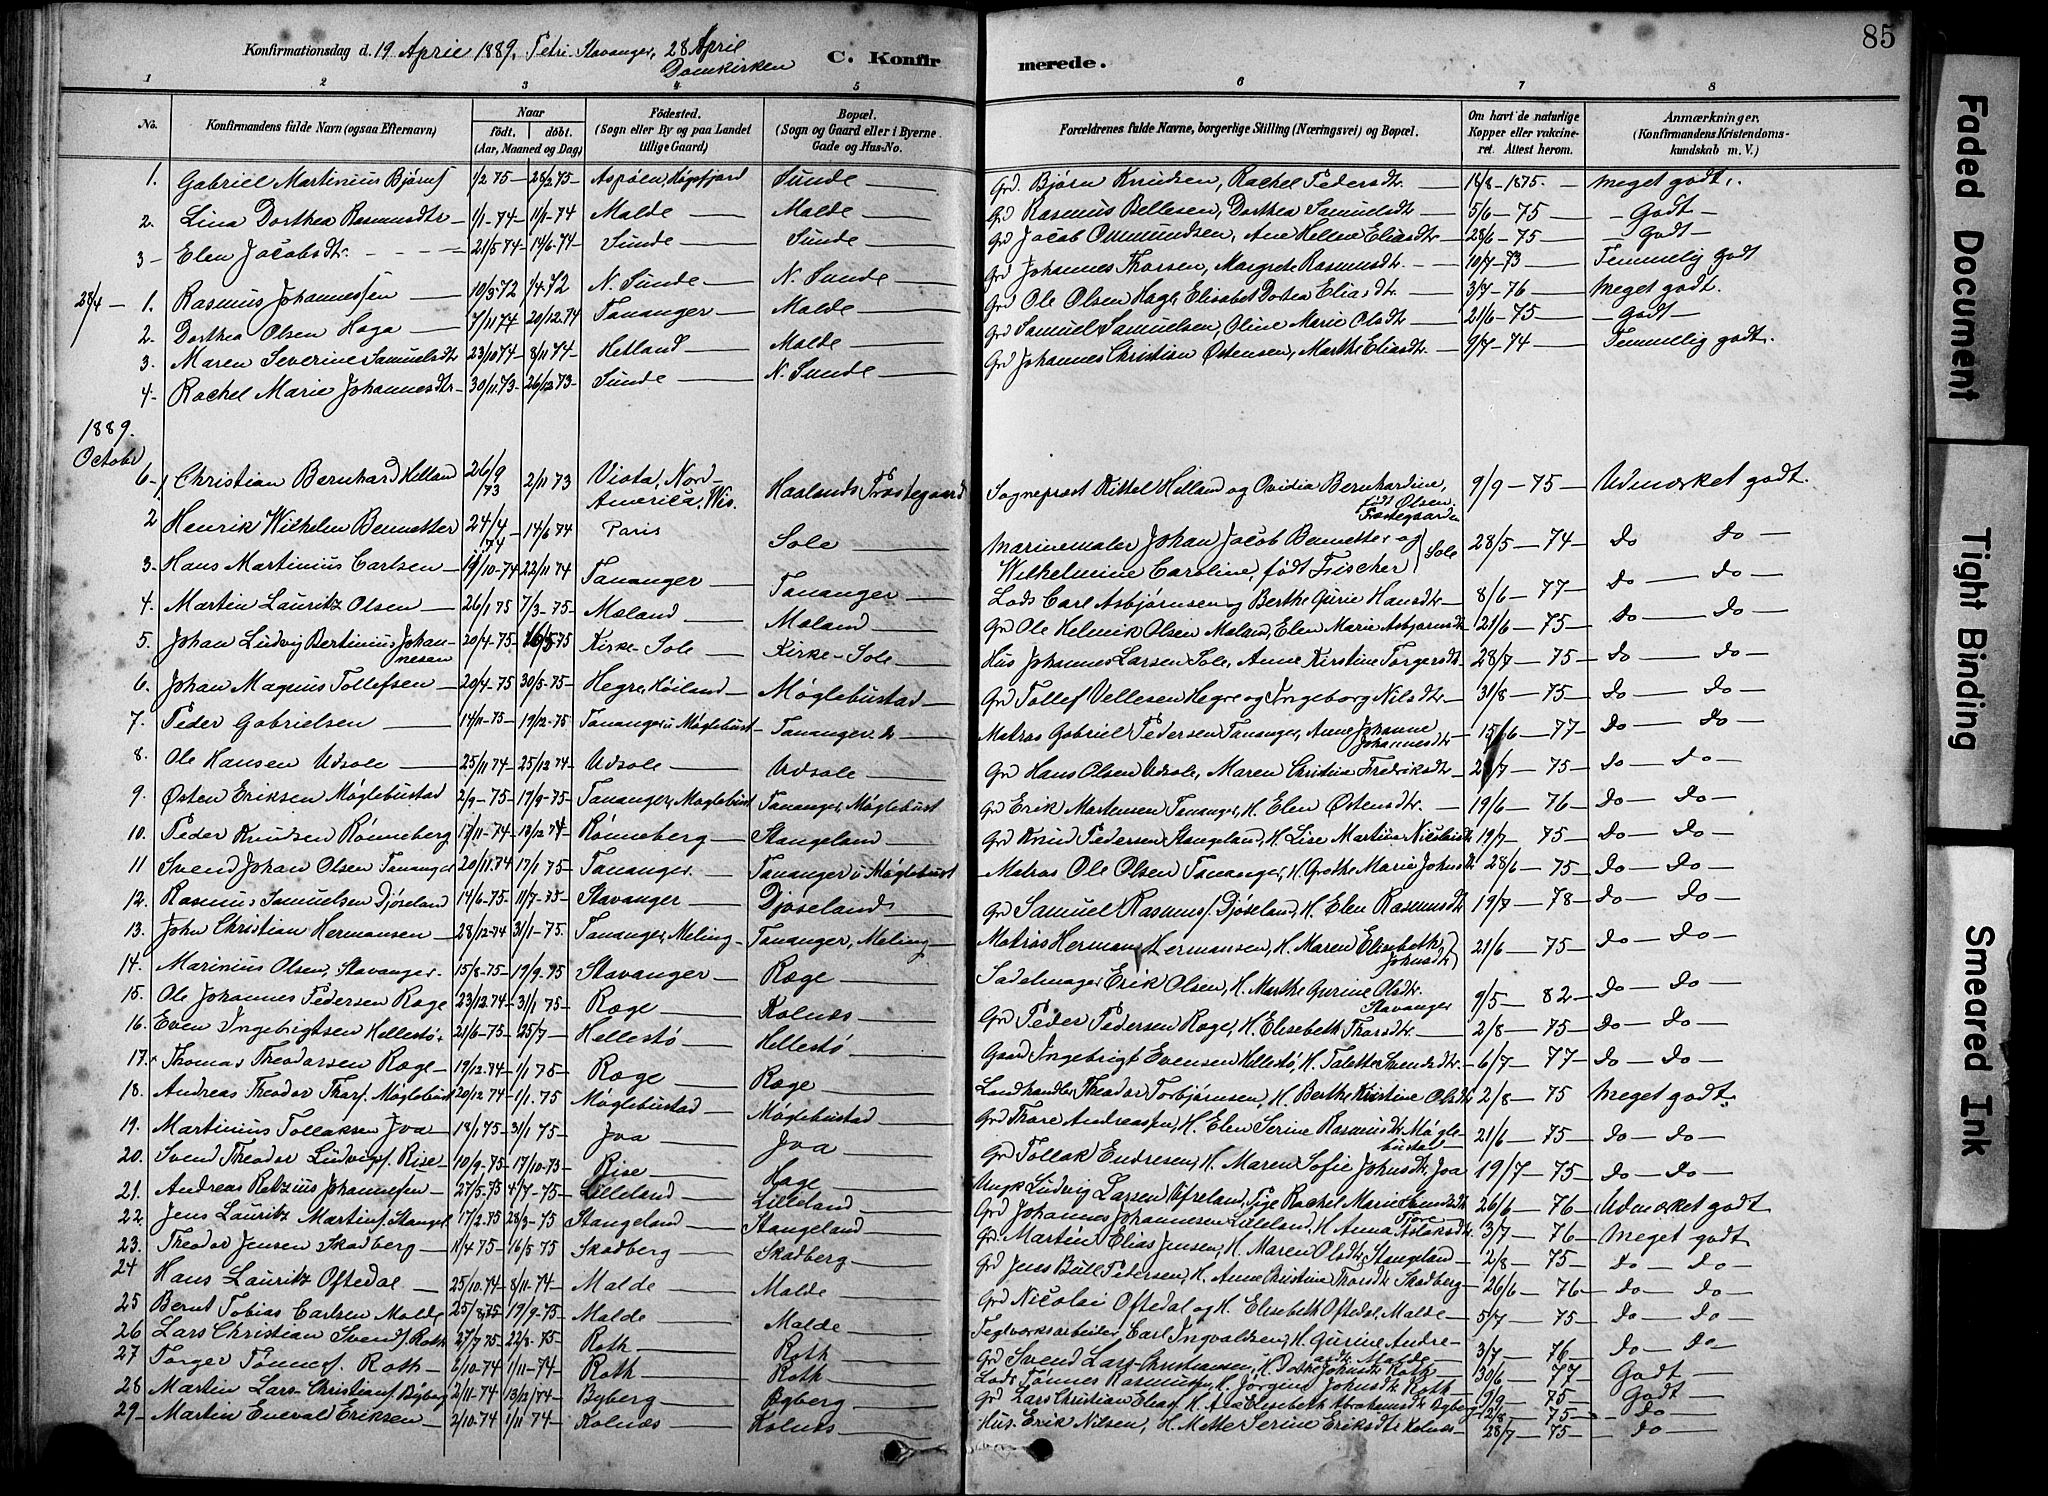 Konfirmationsdag d. 19 April 1889, Petri Stavanger, 28 April Domkirken
C. Konfirmerede.
85
1 2 3 4 5 6 7 8
No. Konfirmandens fulde Navn (ogsaa Efternavn) Naar födt. döbt. (Aar, Maaned og Dag) Födested. (Sogn eller By og paa Landet tillige Gaard) Bopæl. (Sogn og Gaard eller i Byerne Gade og Hus-No. Forældrenes fulde Navne, borgerlige Stilling (Næringsvei) og Bopæl. Om havt de naturlige Kopper eller vakcineret. Attest herom. Anmærkninger. (Konfirmandens Kristendomskundskab m. V.)
1. Gabriel Martinius Bjørns 1/2 75 28/2 75 Aspøen, Høgsfjord Sunde Grd. Bjørn Knudsen, Rachel Pedersdtr 18/8 - 1875. Meget godt.
2. Lina Dorthea Rasmusdtr 1/1 - 74 11/1 - 74 Malde Malde Grd Rasmus Bellesen, Dorthea Samuelsdtr 5/6 - 75 Godt
3 Elen Jacobsdtr. 21/5 74 14/6 - 74 Sunde Sunde Grd Jacob Ommundsen, Ane Helene Eliasdtr 28/6 - 75 Godt
28/4 1. Rasmus Johannessen 10/3 72 1/4 72 N. Sunde N. Sunde Grd Johannes Thorsen, Margrete Rasmusdtr. 10/7 - 73 Temmelig godt
2. Dorthea Olsen Haga 7/11 74 20/12. 74 Tananger Malde Grd Ole Olsen Haga, Elisabet Dortea Eliasdtr 3/7 - 76 Meget godt.
3. Maren Severine Samuelsdtr 23/10 74 8/11 74 Hetland Malde Grd Samuel Samuelsen, Oline Marie Olsdtr 21/6 - 75 Godt
4. Rachel Marie Johannesdtr 30/11. 73 26/12 73 Sunde N. Sunde Grd Johannes Christian Østensen, Marthe Eliasdtr 9/7 - 74 Temmelig godt.
1889. Octobr
6 1 Christian Bernhard Helland 26/9 73 2/11 73 Viota, Nord-America, Wis. Haslands Præstegaard Sognepræst Kittel Helland og Ovidia Bernhardine, født Olsen Præstegaarden 9/9 - 75 Udmærket godt.
2 Henrik Wilhelm Bennetter 24/4 74 14/6 74 Paris Sole Marinemaler Johan Jacob Bennetter og Wilhelmine Caroline, født Fischer Sole 28/5 - 74 Do Do
3. Hans Martinius Carlsen 19/10 - 74 22/11 74 Tananger Tananger Lods Carl Asbjørnsen og Berthe Gurie Hansdtr 8/6 - 77 Do Do
4. Martin Lauritz Olsen 26/1 75 7/3 - 75 Maland Maland Gr Ole Helmik Olsen Maland, Elen Marie Asbjørnsdtr 21/6 - 75 Do Do
5. Johan Ludvig Bertinius Johannesen 20/4 - 75 16/5 75 Kirke-Sole Kirke-Sole Hus Johannes Larsen Sole, Anne Kirstine Torgersdtr 28/7 - 75 Do Do
6. Johan Magnus Tollefsen 20/4 - 75 30/5 - 75 Hegre, Høiland Møglebustad Gr Tollef Vellesen Hegre og Ingeborg Nilsdtr 31/8 - 75 Do Do
7. Peder Gabrielsen 14/11 - 75 19/12 - 75 Tananger u Møglebust Tananger Matros Gabriel Pedersen Tananger, Anne Johanne Johannesdtr 15/6 - 77 Do Do
8. Ole Hansen Udsole 25/11 74 25/12 74 Udsole Udsole Grd Hans Olsen Udsole, Maren Christine Fredriksdtr /7 - 75 Do Do
9. Østen Eriksen Møglebustad 2/9 - 75 19/9 - 75 Tananger, Møglebust Tananger, Møglebust Gr Erik Mortensen Tananger, H. Elen Østensdtr. 19/6 - 76 Do Do
10. Peder Knudsen Rönneberg 17/11 - 74 13/12 74 Rönneberg Stangeland Gr Knud Pedersen Stangeland, H. Lise Martine Nicolaisdtr 19/7 - 75 Do Do
11 Svend Johan Olsen Tananger 20/11. 74 17/1 75 Tananger Tananger u Møglebust Matros Ole Olsen Tananger, H. Grethe Marie Johnsdtr 28/6 - 75 Do Do
12. Rasmus Samuelsen Djøseland 14/6 - 75 11/7 - 75 Stavanger Djøseland Gr Samuel Rasmus. Djøseland, H. Elen Rasmusdtr 19/7 - 78 Do Do
13. John Christian Hermansen 28/12 - 74 31/1 - 75. Tananger, Meling Tananger, Meling Matros Herman Hermansen, H. Maren Elisabeth Johnsdtr 21/6 - 75 Do Do
14. Marinius Olsen, Stavanger. 15/8 - 75 19/9. 75 Stavanger Ræge Sadelmager Erik Olsen, H. Marthe Gurine Olsdtr. Stavanger 9/5 - 82 Do Do
15. Ole Johannes Pedersen Ræge 23/12. 74 31/1 75 Ræge Kolnæs Gr Peder Pedersen Ræge, H. Elisebeth Thorsdtr. 2/8 - 75 Do Do
16. Even Ingebrigtsen Hellestö 21/6 - 75 25/7 Hellestö Hellestö Gaard Ingebrigt Evensen Hellestö, H. Talette Svendsdtr. 6/7 - 77 Do Do
17. Thomas Theodorsen Ræge 19/12. 74 1/1 75 Ræge Ræge Landhandler Theodor Torbjørnsen, H. Berthe Kristine Olsdtr 2/8 - 75 Meget godt.
18. Andreas Theodor Thors. Møglebust 20/12 74 1/1. 75 Møglebustad Møglebustad Gr Thore Andreassen, H. Elen Serine Rasmusdtr. Møglebustad 21/6 - 75 Do Do
19. Martinius Tollaksen Joa 18/1 75 31/1 75 Joa Joa Gr Tollak Endresen, H. Maren Sofie Johnsdtr. Joa 19/7 - 75 Do Do
20. Svend Theodor Ludvigs. Rise 10/9 - 75 17/10 - 75 Rise Hage Ungk Ludvig Larsen, Pige Rachel Marie Svendsdtr Tjore 26/6 - 76 Udmærket godt
21. Andreas Retzius Johannesen 27/5 - 75 4/7 - 75 Lilleland Lilleland Grd Johannes Johannesen Lilleland, H. Anna Aslaksdtr 3/7 - 76 Meget godt
22. Jens Lauritz Martins. Stangel. 17/2. 75 28/3 - 75 Stangeland Stangeland Gr. Martin Elias Jensen, H. Maren Olsdtr. Stangeland 2/8 - 75 Do Do
23. Theodor Jensen Skadberg 11/4 75 16/5 75 Skadberg Skadberg Grd Jens Bull Petersen, H. Anne Christine Thorsdtr Skadberg 26/6 - 76 Do Do
24 Hans Lauritz Oftedal 25/10. 74 8/11 - 74 Malde Malde Grd Nicolai Oftedal og H. Elisebeth Oftedal, Malde 5/7 - 75 Do Do
25 Bernt Tobias Carlsen Malde 25/8 75 19/9 - 75 Malde Malde Teglværksarbeider Carl Ingvaldsen, H. Gurine Andreasdtr Malde 3/7 - 76 Do Do
26 Lars Christian Svends. Roth 27/7 75 22/8 - 75 Roth Roth Grd Svend Lars Christiansen, H. Johnsdtr Roth 30/6 - 77 Godt
27 Torger Tönnes. Roth 6/10 - 74 1/11 - 74 Roth Roth Lods Tönnes Rasmussen, H. Jörgine Johnsdtr Roth 9/9 - 75 Godt
28 Martin Lars Christians. Byberg 2/11 - 74 13/12 /74 Byberg Byberg Gr Lars Christian Elias. H. Elisebeth Abrahamsdtr Byberg 12/8 - 75 Do
29 Martin Eneval Eriksen 2/10. 74 1/11 74 Kolnæs Kolnæs Hus. Erik Nilsen, H. Mette Serine Eriksdtr Kolnæs 28/7 - 75 Do
Faded Document
Tight Binding
Smeared Ink